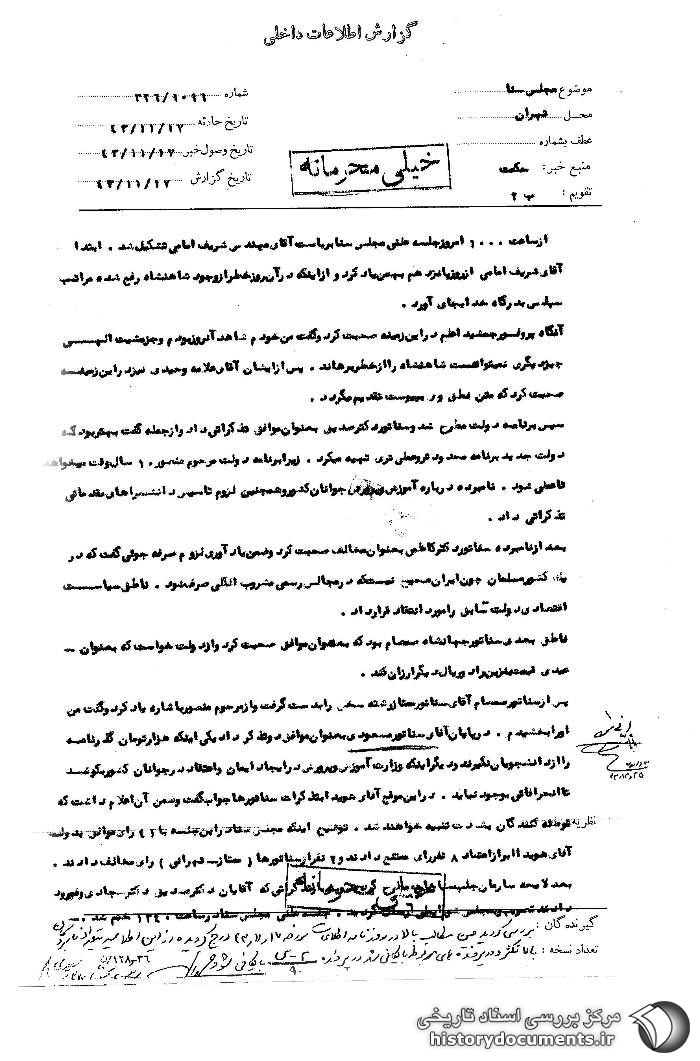 گزارش اطلاعات داخلی
موضوع مجلس سنا
محل تهران
عطف بشماره
منبع خبر: حکمت
تقویم: ب ۲
شماره ۳۲۶/۱۰۹۹
تاریخ حادثه ۴۳/۱۱/۱۷
تاریخ وصول خبر ۴۳/۱۱/۱۷
تاریخ گزارش ۴۳/۱۱/۱۷
خیلی محرمانه
از ساعت ۱۰۰۰ امروز جلسه علنی مجلس سنا بریاست آقای مهندس شریف امامی تشکیل شد . ابتدا
آقای شریف امامی از روز پانزدهم بهمن یاد کرد و از اینکه در آن روز خطر از وجود شاهنشاه رفع شده مراتب
سپاس بدرگاه خدا بجای آورد .
آنگاه پروفسور جمشید اعلم در این زمینه صحبت کرد و گفت من خودم شاهد آنروز بودم و جز مشیت الهی
چیز دیگری نمیتوانست شاهنشاه را از خطر برهاند . پس از ایشان آقای علامه وحیدی نیز در این زمینه
صحبت کرد که متن نطق وی بپیوست تقدیم میگردد .
سپس برنامه دولت مطرح شد و سناتور دکتر صدیق بعنوان موافق تذکراتی داد و از جمله گفت بهتر بود که
دولت جدید برنامه محدودتر و عملی تری تهیه میکرد . زیرا برنامه دولت مرحوم منصور ۱۰ سال وقت میخواهد
تا عملی شود . نامبرده درباره آموزش و پرورش جوانان کشور و همچنین لزوم تاسیس دانشسراهای مقدماتی
تذکراتی داد .
بعد از نامبرده سناتور دکتر کاظمی بعنوان مخالف صحبت کرد و ضمن یادآوری لزوم صرفه جوئی گفت که در
یک کشور مسلمان چون ایران صحیح نیست که در مجالس رسمی مشروب الکلی صرف شود . ناطق سیاست
اقتصادی دولت سابق را مورد انتقاد قرار داد .
ناطق بعدی سناتور جهانشاه صمصام بود که بعنوان موافق صحبت کرد و از دولت خواست که بعنوان
عیدی قیمت بنزین را دو ریال دیگر ارزان کند .
پس از سناتور صمصام آقای سناتور ممتاز رشته سخن را بدست گرفت و از مرحوم منصور با شاره یاد کرد و گفت من
او را بخشیدم . در پایان آقای سناتور مسعودی بعنوان موافق دو تذکر داد یکی اینکه هزار تومان گذرنامه
را از دانشجویان نگیرند و دیگر اینکه وزارت آموزش و پرورش در ایجاد ایمان و اعتقاد در جوانان کشور بکوشد
تا انحرافاتی بوجود نیاید . در این موقع آقای هویدا بتذکرات سناتورها جواب گفت و ضمن آن اعلام داشت که
نظریه توطئه کنندگان بشدت تنبیه خواهند شد . توضیح اینکه مجلس سنا در این جلسه با ۴۲ رای موافق بدولت
آقای هویدا ابراز اعتماد ۸ نفر رای ممتنع دادند و ۲ نفر از سناتورها (ممتاز - تهرانی) رای مخالف دادند .
بعد لایحه سازمان
خیلی محرمانه
که آقایان دکتر صدیق دکتر سجادی و غیره
جلسه علنی مجلس سنا در ساعت ۱۲۴۰ ختم شد .
گیرندگان:
تعداد نسخه:
مرکز بررسی اسناد تاریخی
historydocuments.ir